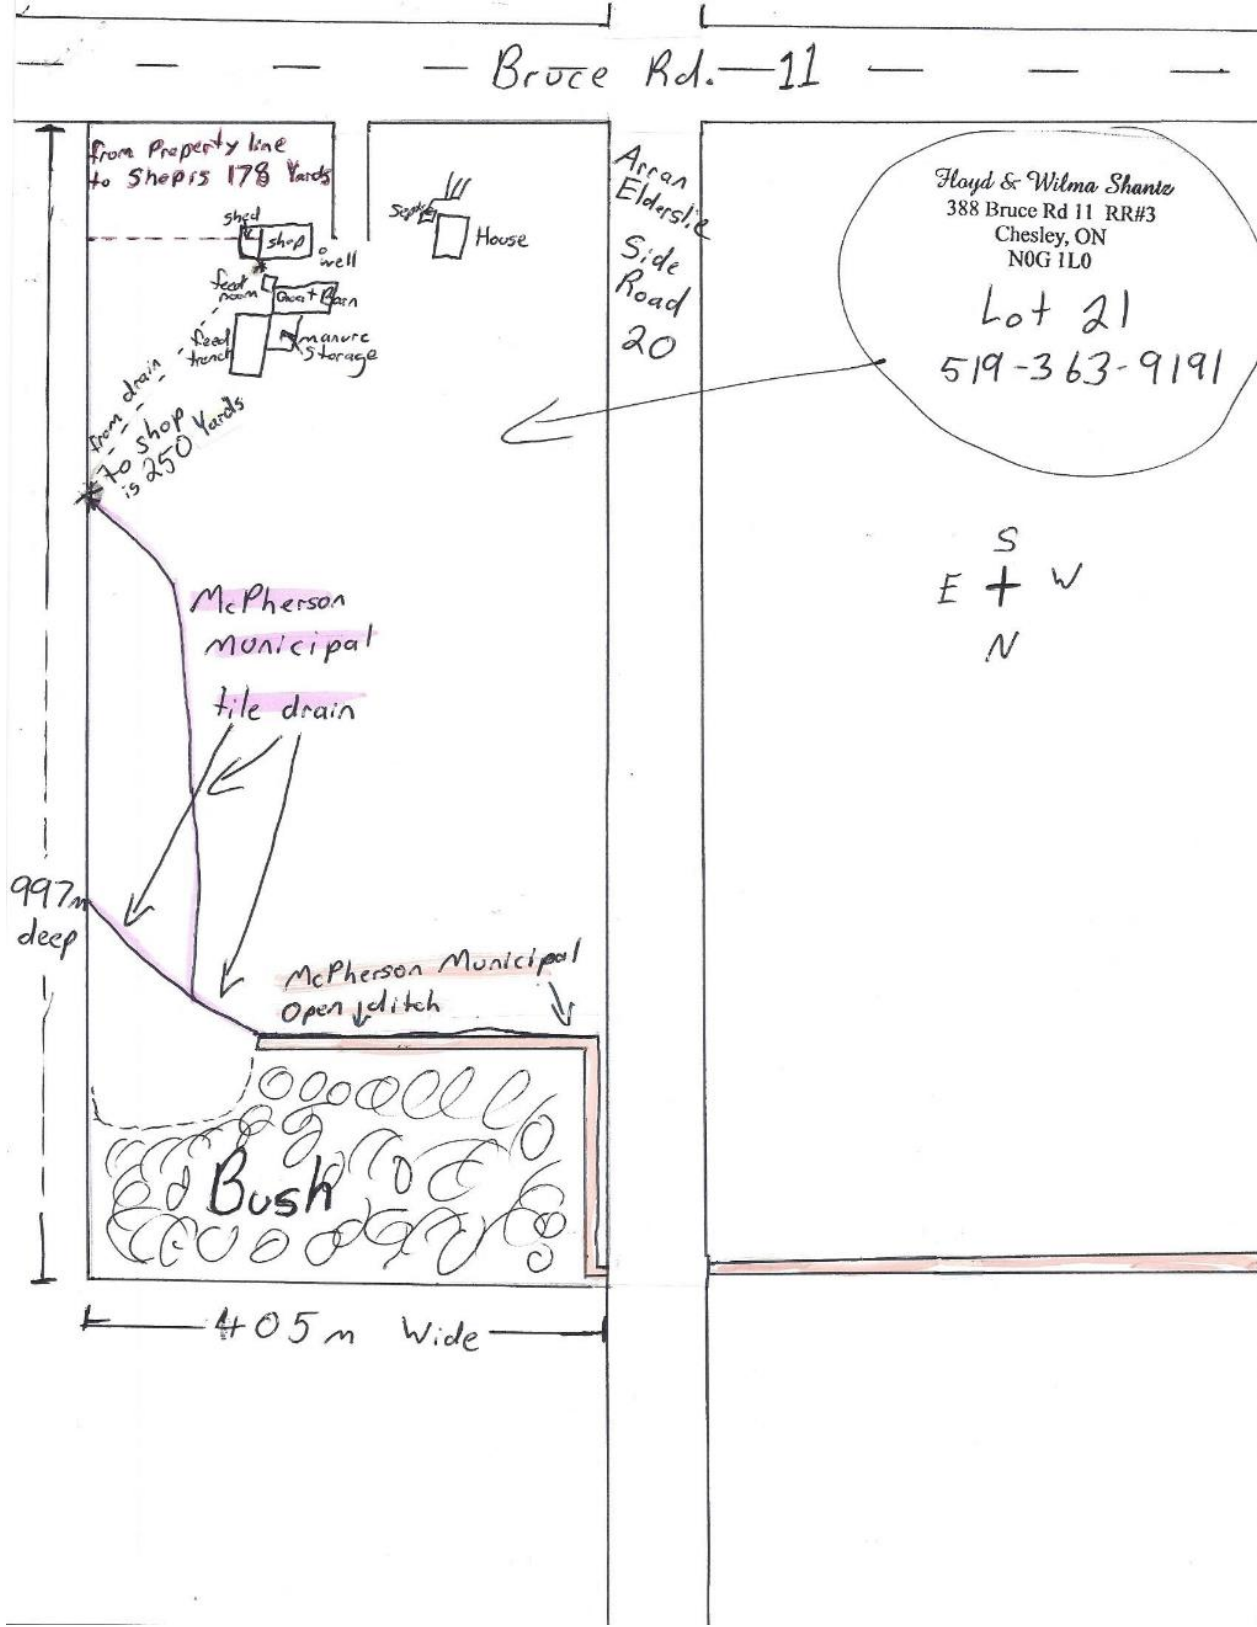 Bruce Rd. 11
from Property line
to Shop is 178 Yards
shed
shop
well
Septic
House
feed
room
Goat Barn
feed
trench
manure
storage
from drain
to shop
is 250 Yards
Arran
Elderslie
Side
Road
20
Floyd & Wilma Shantz
388 Bruce Rd 11 RR#3
Chesley, ON
N0G 1L0
Lot 21
519-363-9191
S
E W
N
McPherson
Municipal
tile drain
997m
deep
McPherson Municipal
Open ditch
Bush
405m Wide